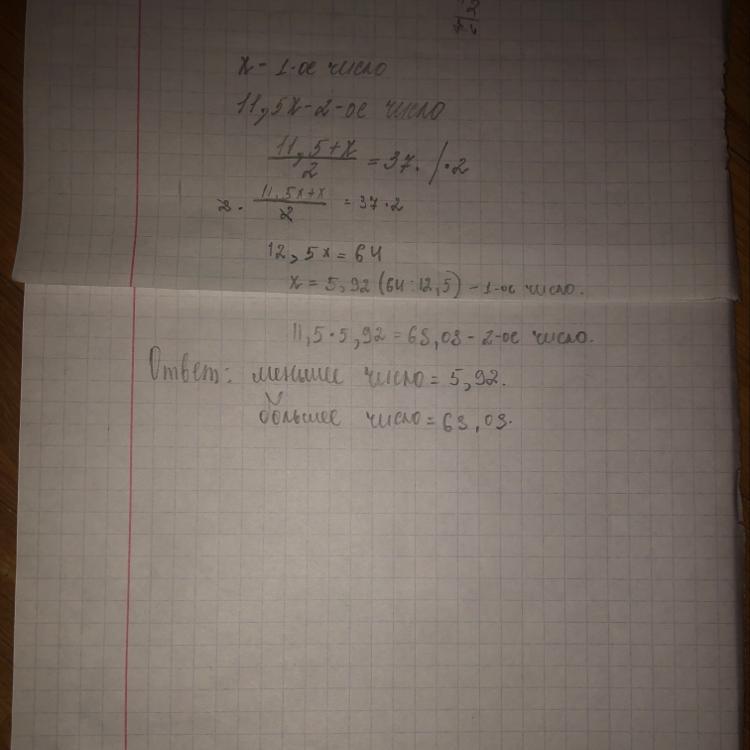 x - 1-ое число
11,5x - 2-ое число
11,5+x / 2 = 37. /·2
2 · 11,5x+x / 2 = 37·2
12,5x = 64
x = 5,92 (64:12,5) - 1-ое число.
11,5·5,92 = 68,08 - 2-ое число.
Ответ: меньшее число = 5,92.
большее число = 68,08.